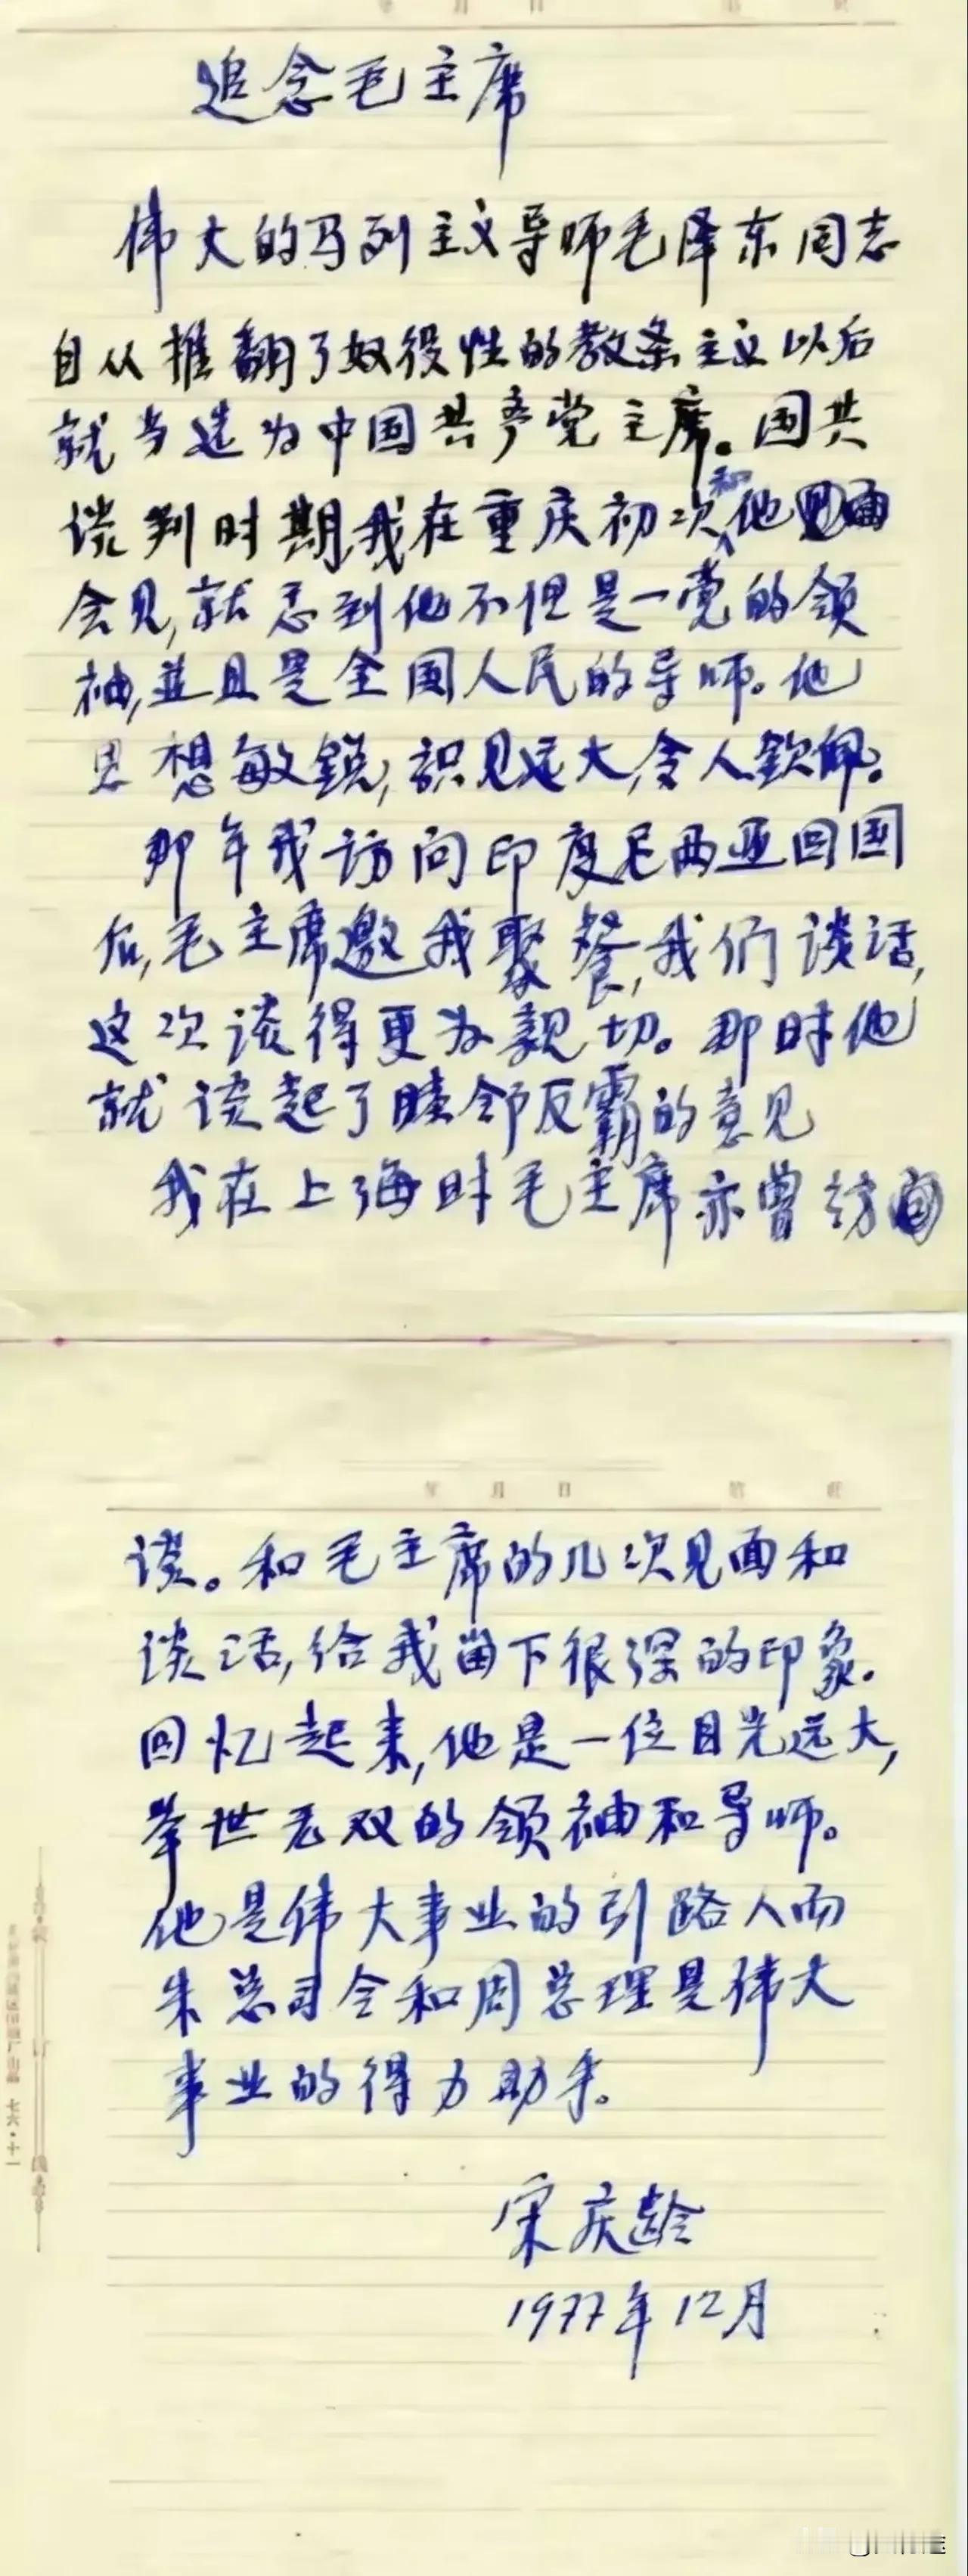 年 月 日 第 页
追念毛主席
伟大的马列主义导师毛泽东同志
自从推翻了奴役性的教条主义以后
就当选为中国共产党主席。国共
谈判时期,我在重庆初次和他
会见,就感到他不但是一党的领
袖,並且是全国人民的导师。他
思想敏锐,識见远大,令人钦佩。
那年我访问印度尼西亚回国
后,毛主席邀我聚餐,我们谈话,
这次谈得更为親切。那时他
就谈起了睦邻反霸的意见
我在上海时毛主席亦曾访
年 月 日 第 页
谈。和毛主席的几次见面和
谈话,给我留下很深的印象.
回忆起来,他是一位目光远大,
举世无双的领袖和导师。
他是伟大事业的引路人而
朱总司令和周总理是伟大
事业的得力助手。
宋庆龄
1977年12月
七六·十一